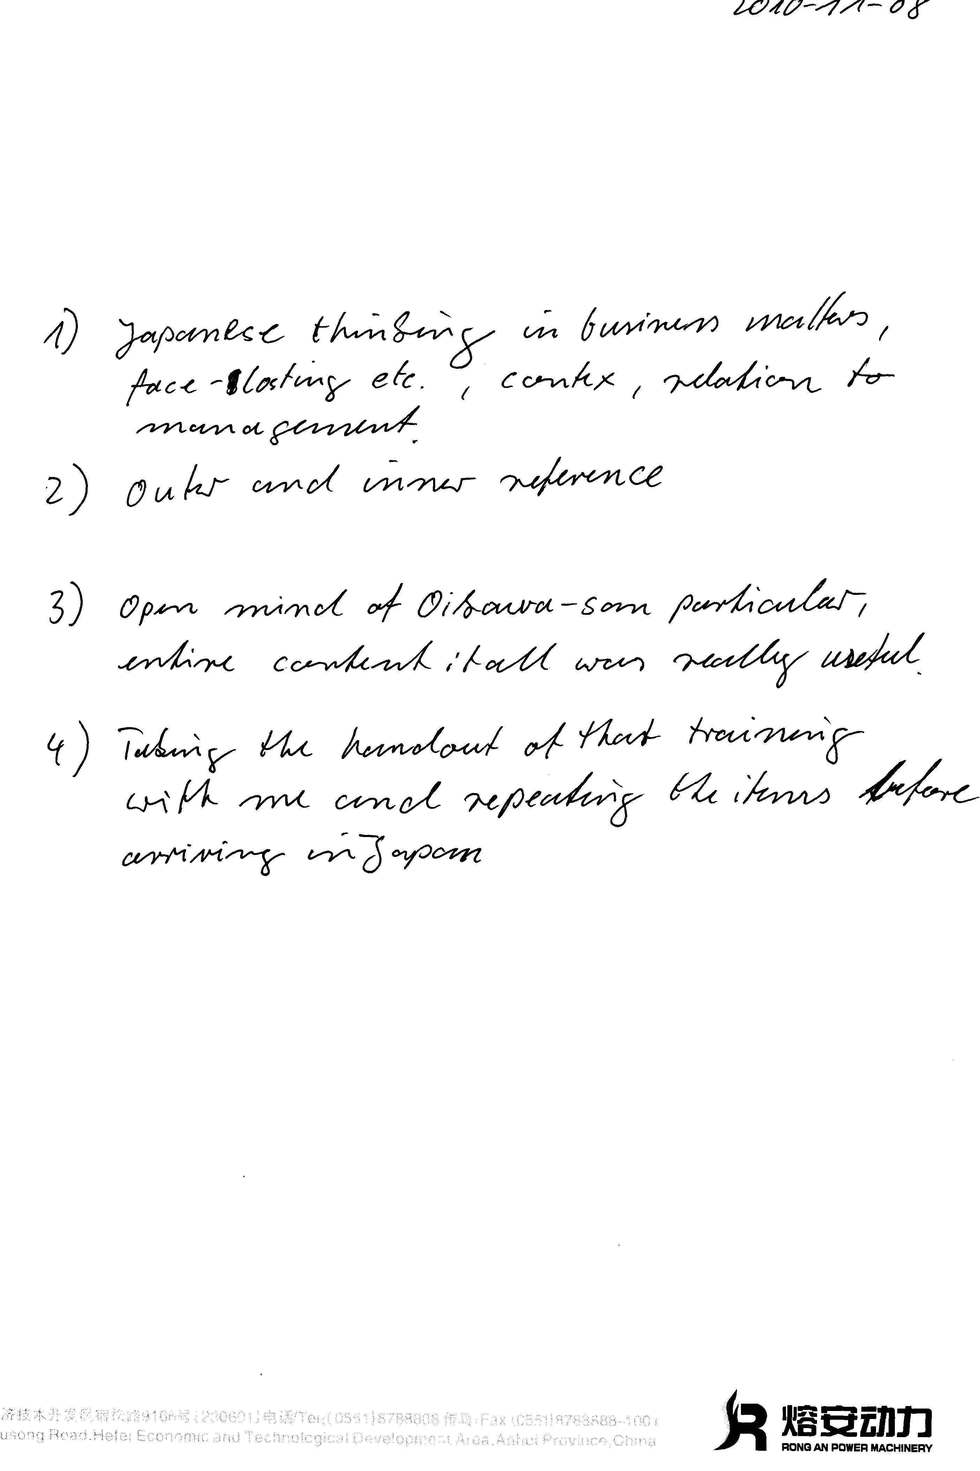 2010-11-08
1) Japanese thinking in business matters,
face-losting etc. , contex, relation to
management.
2) Outer and inner reference
3) Open mind of Oikawa-san particular,
entire content itall was really useful.
4) Taking the handout of that training
with me and repeating the items before
arriving in Japan
济技术开发区 路9108号(230601)电话/Tel:(0551)8788808 传真/Fax:(0551)8788888-1001
usong Road.Hefei Economic and Technological Development Area,Anhui Province,China
熔安动力
RONG AN POWER MACHINERY